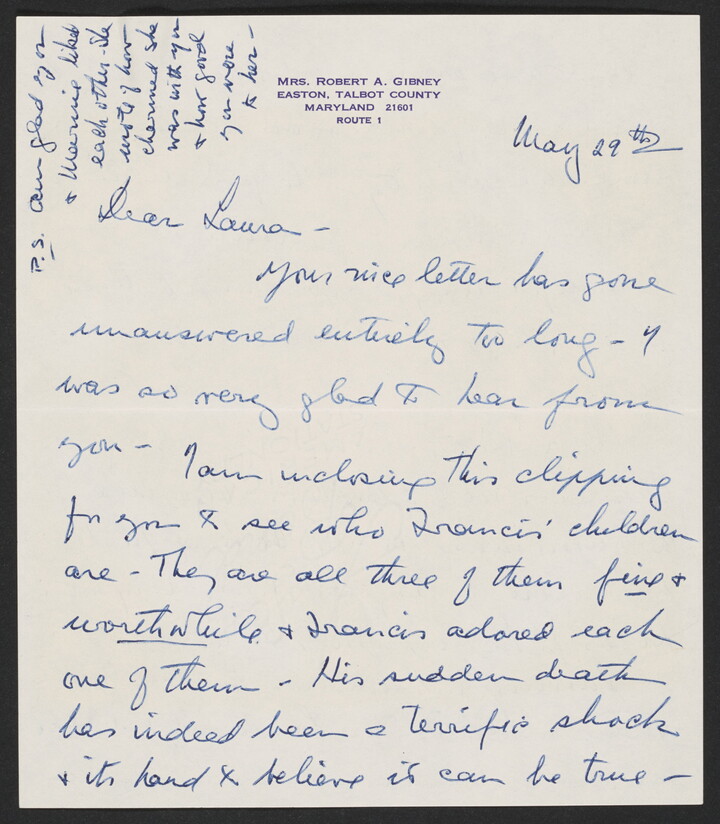 MRS. ROBERT A. GIBNEY
EASTON, TALBOT COUNTY
MARYLAND 21601
ROUTE 1
May 29th
Dear Laura -
Your nice letter has gone
unanswered entirely too long - I
was so very glad to hear from
you -
I am inclosing this clipping
for you to see who Francis' children
are - They are all three of them fine +
worthwhile + Francis adored each
one of them - His sudden death
has indeed been a terrific shock
+ its hard to believe it can be true -
P.S. Am glad you
+ Marnie liked
each other - She
wrote of how
charmed she
was with you
+ how good
you were
to her -